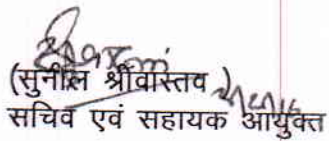 (सुनील श्रीवास्तव)
सचिव एवं सहायक आयुक्त